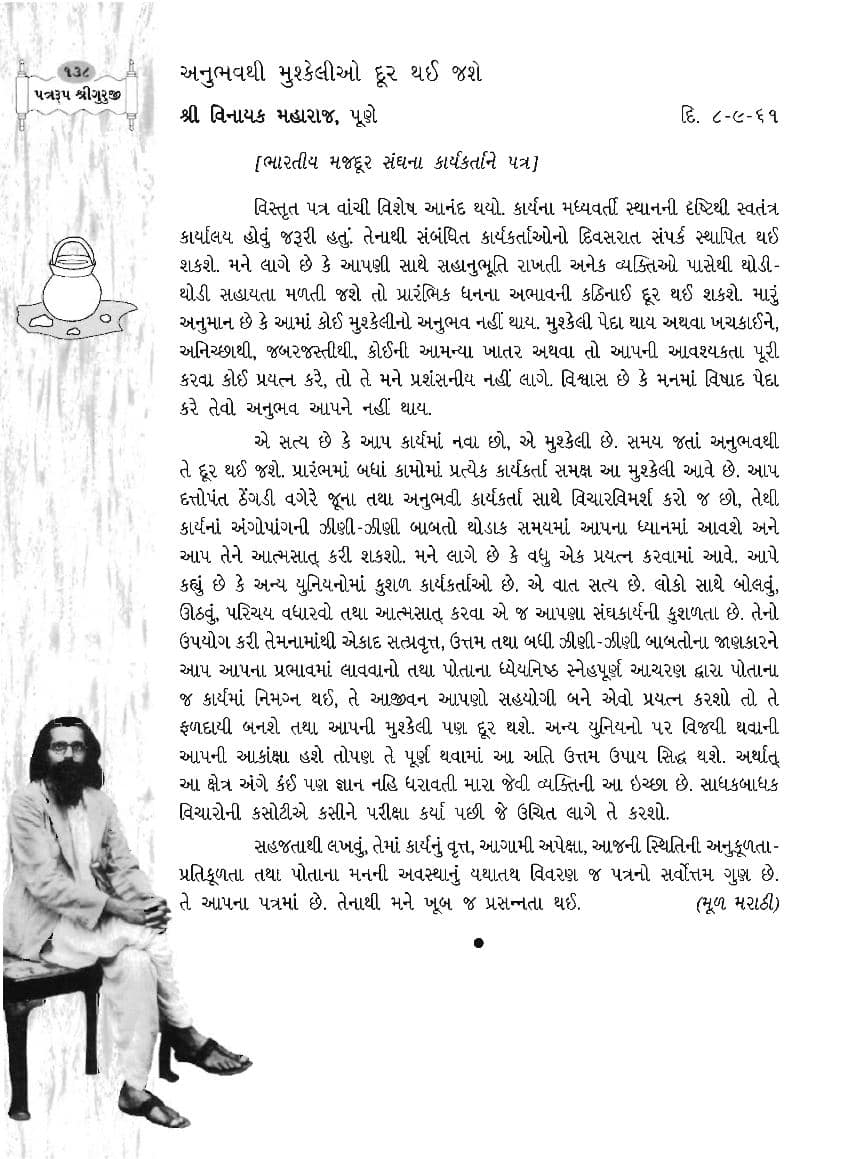 ૧૩૮
પત્રરૂપ શ્રીગુરુજી
અનુભવથી મુશ્કેલીઓ દૂર થઈ જશે
શ્રી વિનાયક મહારાજ, પૂણે દિ. ૮-૯-૬૧
[ભારતીય મજદૂર સંઘના કાર્યકર્તાને પત્ર]
વિસ્તૃત પત્ર વાંચી વિશેષ આનંદ થયો. કાર્યના મધ્યવર્તી સ્થાનની દૃષ્ટિથી સ્વતંત્ર
કાર્યાલય હોવું જરૂરી હતું. તેનાથી સંબંધિત કાર્યકર્તાઓનો દિવસરાત સંપર્ક સ્થાપિત થઈ
શકશે. મને લાગે છે કે આપણી સાથે સહાનુભૂતિ રાખતી અનેક વ્યક્તિઓ પાસેથી થોડી-
થોડી સહાયતા મળતી જશે તો પ્રારંભિક ધનના અભાવની કઠિનાઈ દૂર થઈ શકશે. મારું
અનુમાન છે કે આમાં કોઈ મુશ્કેલીનો અનુભવ નહીં થાય. મુશ્કેલી પેદા થાય અથવા ખચકાઈને,
અનિચ્છાથી, જબરજસ્તીથી, કોઈની આમન્યા ખાતર અથવા તો આપની આવશ્યકતા પૂરી
કરવા કોઈ પ્રયત્ન કરે, તો તે મને પ્રશંસનીય નહીં લાગે. વિશ્વાસ છે કે મનમાં વિષાદ પેદા
કરે તેવો અનુભવ આપને નહીં થાય.
એ સત્ય છે કે આપ કાર્યમાં નવા છો, એ મુશ્કેલી છે. સમય જતાં અનુભવથી
તે દૂર થઈ જશે. પ્રારંભમાં બધાં કામોમાં પ્રત્યેક કાર્યકર્તા સમક્ષ આ મુશ્કેલી આવે છે. આપ
દત્તોપંત ઠેંગડી વગેરે જૂના તથા અનુભવી કાર્યકર્તા સાથે વિચારવિમર્શ કરો જ છો, તેથી
કાર્યનાં અંગોપાંગની ઝીણી-ઝીણી બાબતો થોડાક સમયમાં આપના ધ્યાનમાં આવશે અને
આપ તેને આત્મસાત્ કરી શકશો. મને લાગે છે કે વધુ એક પ્રયત્ન કરવામાં આવે. આપે
કહ્યું છે કે અન્ય યુનિયનોમાં કુશળ કાર્યકર્તાઓ છે. એ વાત સત્ય છે. લોકો સાથે બોલવું,
ઊઠવું, પરિચય વધારવો તથા આત્મસાત્ કરવા એ જ આપણા સંઘકાર્યની કુશળતા છે. તેનો
ઉપયોગ કરી તેમનામાંથી એકાદ સત્પ્રવૃત્ત, ઉત્તમ તથા બધી ઝીણી-ઝીણી બાબતોના જાણકારને
આપ આપના પ્રભાવમાં લાવવાનો તથા પોતાના ધ્યેયનિષ્ઠ સ્નેહપૂર્ણ આચરણ દ્વારા પોતાના
જ કાર્યમાં નિમગ્ન થઈ, તે આજીવન આપણો સહયોગી બને એવો પ્રયત્ન કરશો તો તે
ફળદાયી બનશે તથા આપની મુશ્કેલી પણ દૂર થશે. અન્ય યુનિયનો પર વિજયી થવાની
આપની આકાંક્ષા હશે તોપણ તે પૂર્ણ થવામાં આ અતિ ઉત્તમ ઉપાય સિદ્ધ થશે. અર્થાત્
આ ક્ષેત્ર અંગે કંઈ પણ જ્ઞાન નહિ ધરાવતી મારા જેવી વ્યક્તિની આ ઇચ્છા છે. સાધકબાધક
વિચારોની કસોટીએ કસીને પરીક્ષા કર્યા પછી જે ઉચિત લાગે તે કરશો.
સહજતાથી લખવું, તેમાં કાર્યનું વૃત્ત, આગામી અપેક્ષા, આજની સ્થિતિની અનુકૂળતા-
પ્રતિકૂળતા તથા પોતાના મનની અવસ્થાનું યથાતથ વિવરણ જ પત્રનો સર્વોત્તમ ગુણ છે.
તે આપના પત્રમાં છે. તેનાથી મને ખૂબ જ પ્રસન્નતા થઈ. (મૂળ મરાઠી)